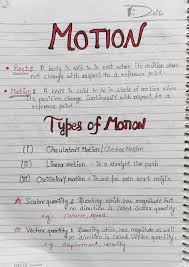 Date
MOTION
• Rest: A body is said to be in rest when its position does
not change with respect to a reference point
• Motion: A body is said to be in state of motion when
its position change continuously with respect to a
reference point
Types of MOTION
(i) Circulatory Motion / Circular Motion
(ii) Linear motion - In a straight line path
(iii) Oscillatory motion - To and fro path wrt origin
☆ Scalar quantity: Quantity which has magnitude but
no direction is called Scalar quantity
eg: distance, speed.
☆ Vector quantity: Quantity which has magnitude as well
as direction is called Vector quantity.
eg: displacement, velocity